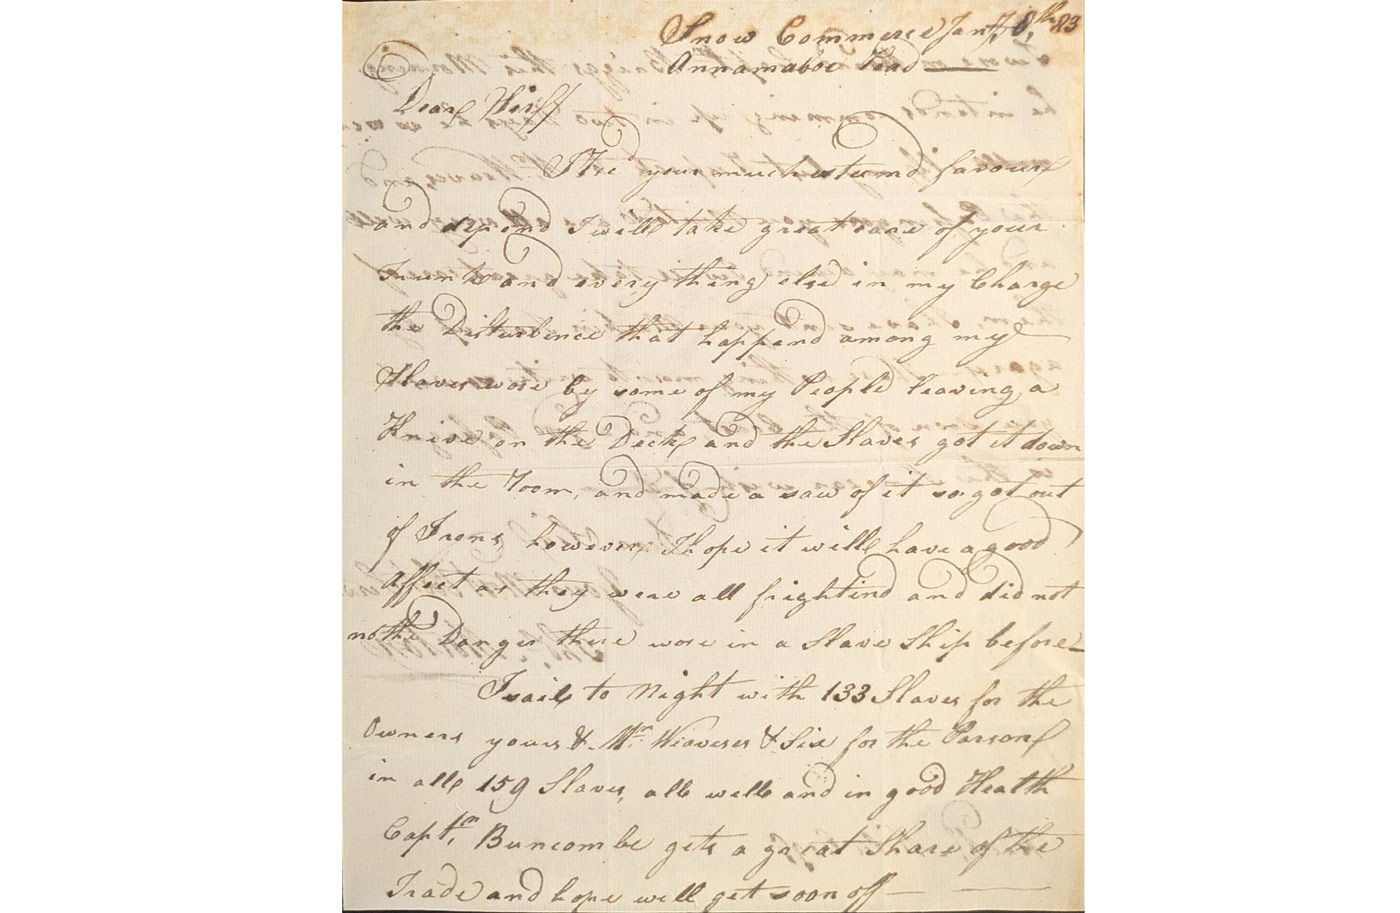 Snow Commerce Jany. 8th 83
Annamaboe Road
Dear Sir
I Recd your much esteemd favour
and depend I will take great care of your
and every thing else in my Charge
the Disturbence that happend among my
Slaves wore by some of my People leaving a
Knive on the Deck, and the Slaves got it down
in the Room, and made a saw of it so got out
of Irons, however I hope it will have a good
Affect as they were all frightind and did not
no the Danger there wore in a Slave Ship before
I sail to Night with 133 Slaves for the
Owners yours & Mr. Weaveres & Six for the Parson
in all 159 Slaves, all well and in good Health
Captn. Buncombe gets a great Share of the
Trade and hope will get soon off